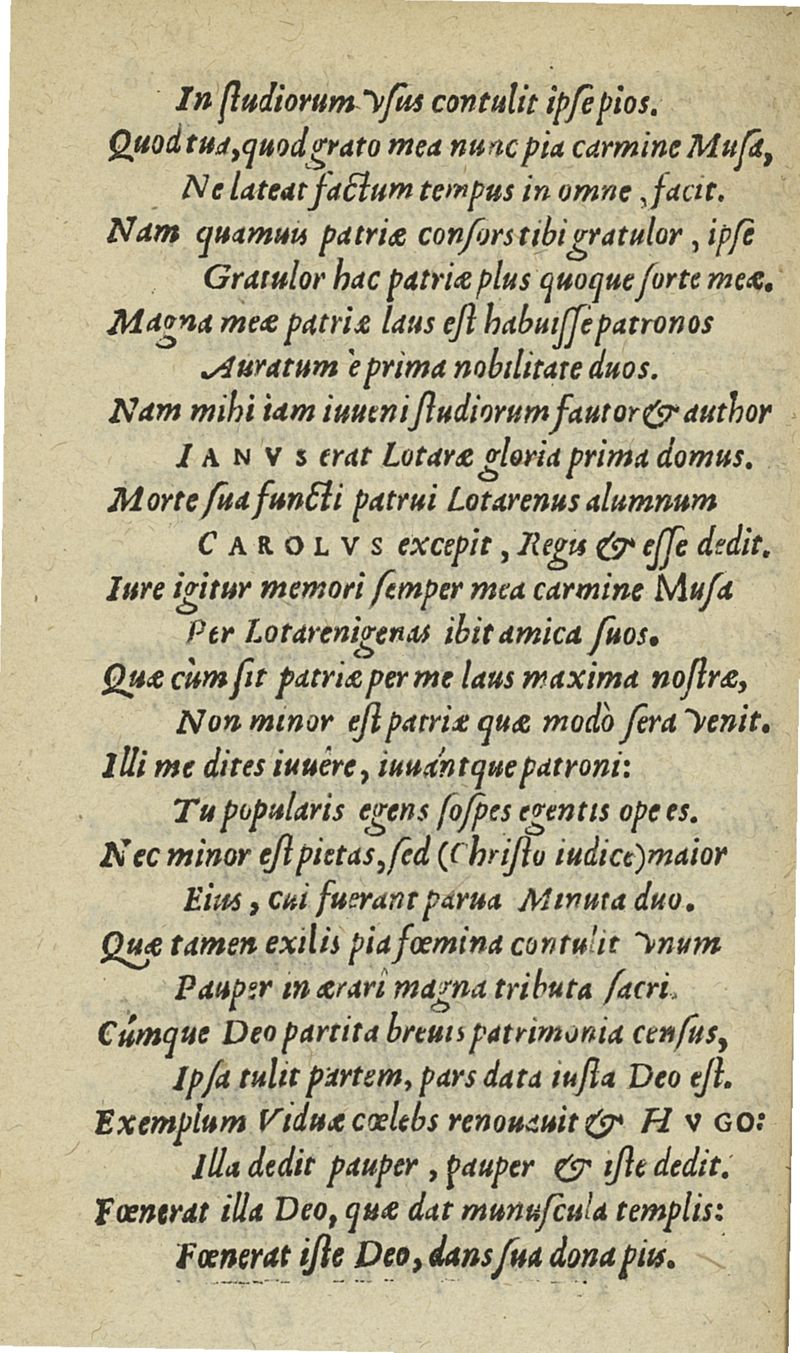 In ſtudiorum vſus contulit ipſe pios.
Quod tua, quod grato mea nunc pia carmine Muſa,
Ne lateat factum tempus in omne, facit.
Nam quamuis patriæ conſors tibi gratulor, ipſe
Gratulor hac patriæ plus quoque ſorte meæ.
Magna meæ patriæ laus eſt habuiſſe patronos
Auratum è prima nobilitate duos.
Nam mihi iam iuueni ſtudiorum fautor & author
IANVS erat Lotaræ gloria prima domus.
Morte ſua functi patrui Lotarenus alumnum
CAROLVS excepit, Regis & eſſe dedit.
Iure igitur memori ſemper mea carmine Muſa
Per Lotarenigenas ibit amica ſuos.
Quæ cùm ſit patriæ per me laus maxima noſtræ,
Non minor eſt patriæ quæ modò ſera venit.
Illi me dites iuuêre, iuuántque patroni:
Tu popularis egens ſoſpes egentis ope es.
Nec minor eſt pietas, ſed (Chriſto iudice) maior
Eius, cui fuerant parua Minuta duo.
Quæ tamen exilis pia fœmina contulit vnum
Pauper in ærarî magna tributa ſacri.
Cúmque Deo partita breuis patrimonia cenſus,
Ipſa tulit partem, pars data iuſta Deo eſt.
Exemplum Viduæ cœlebs renouauit & HVGO:
Illa dedit pauper, pauper & iſte dedit.
Fœnerat illa Deo, quæ dat munuſcula templis:
Fœnerat iſte Deo, dans ſua dona pius.